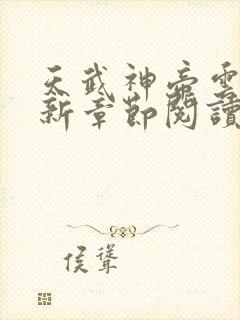 天武神帝雲
新章節閱讀
侯聳